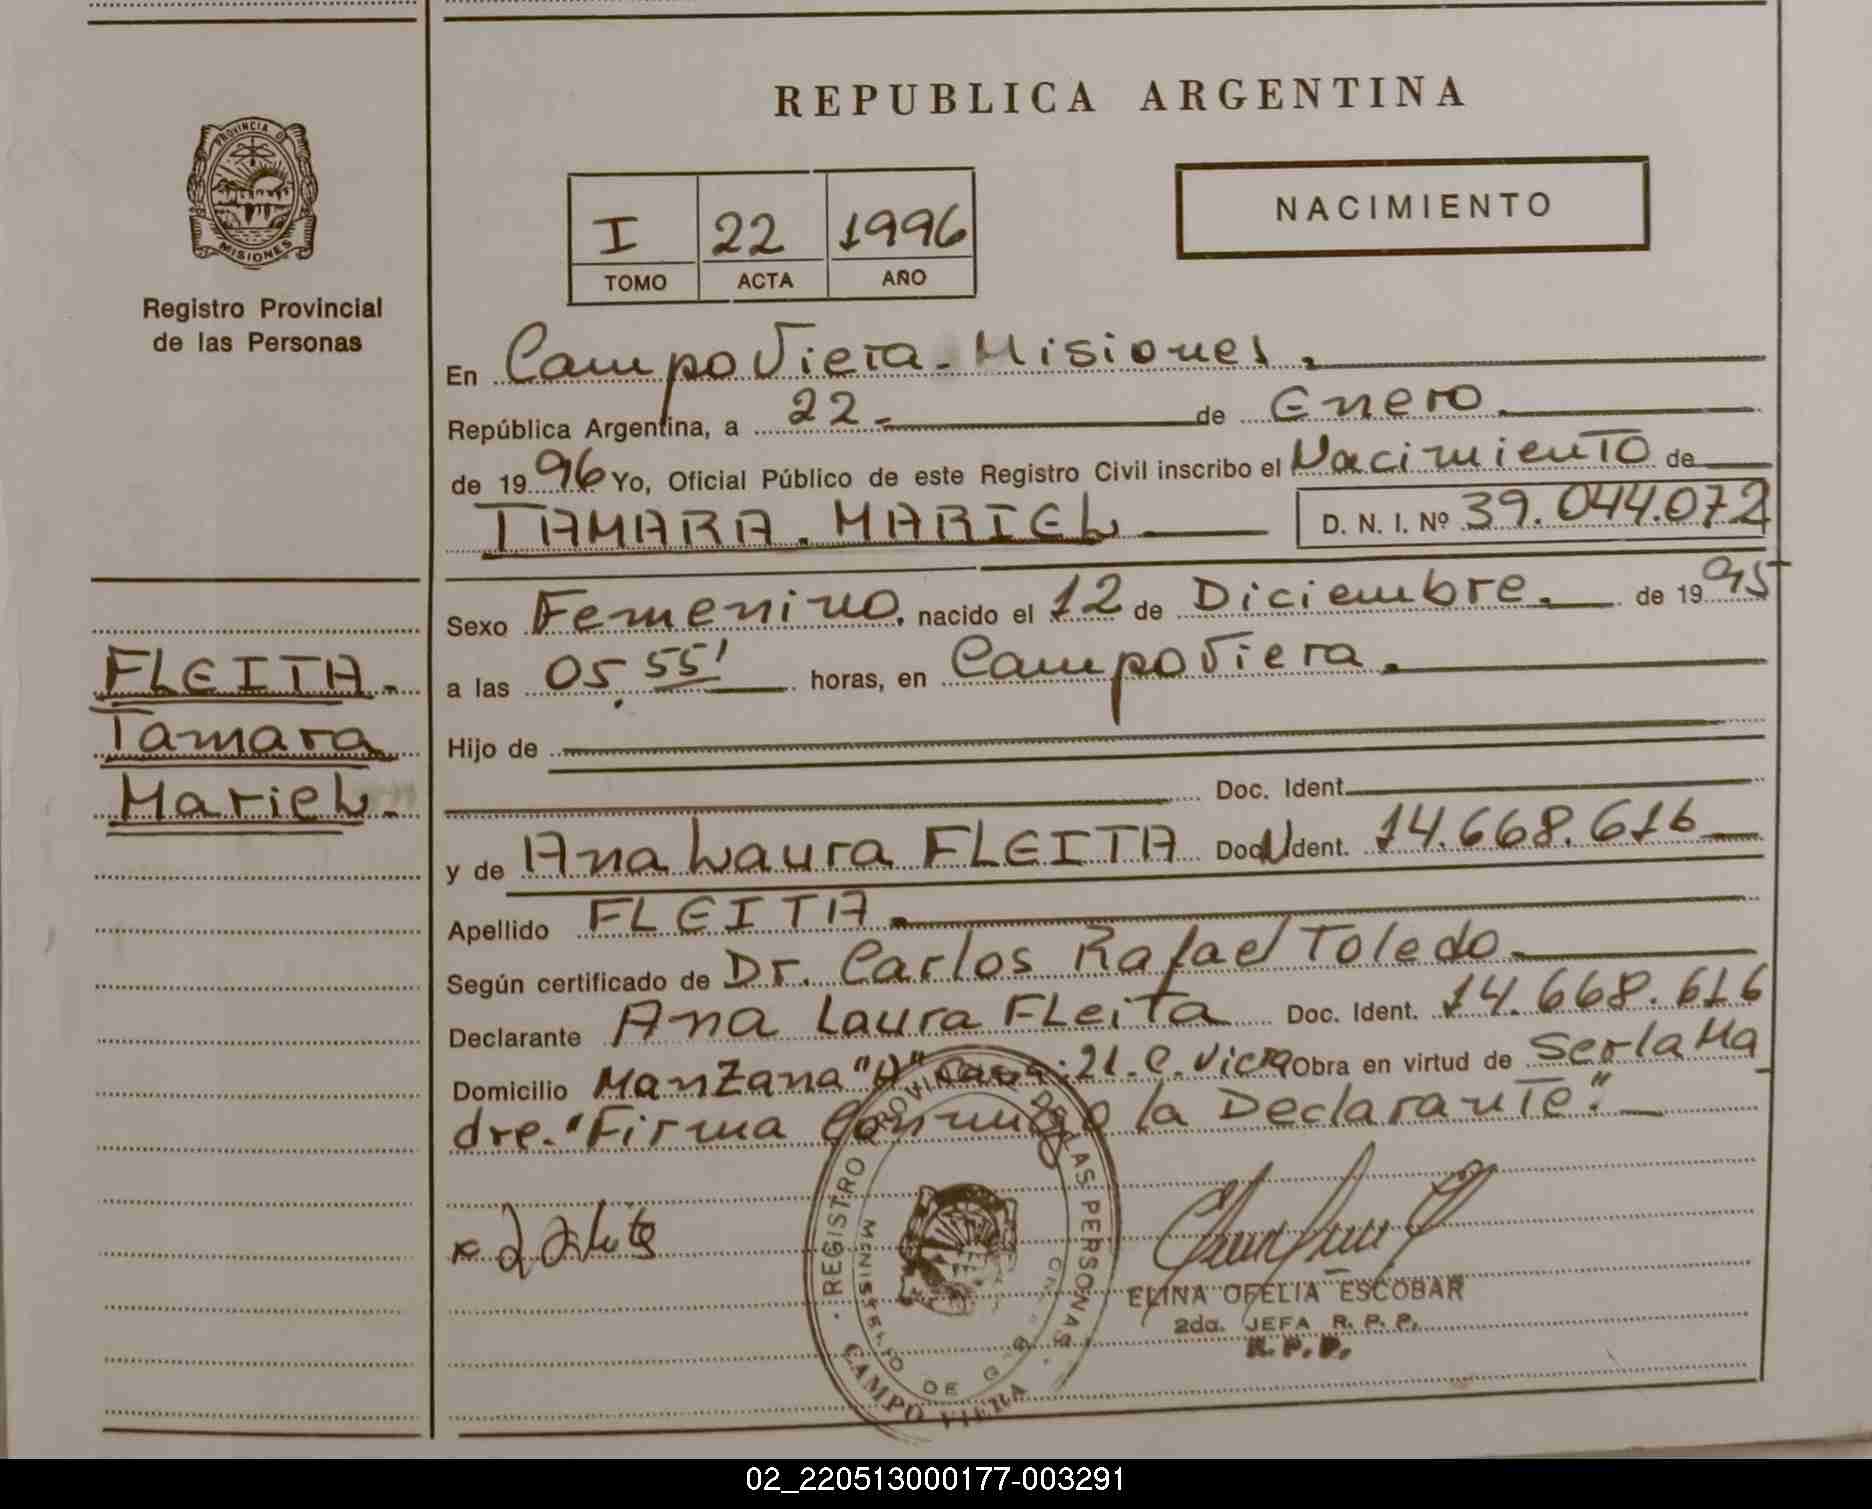 REPUBLICA ARGENTINA
PROVINCIA DE
MISIONES
Registro Provincial
de las Personas
I 22 1996
TOMO ACTA AÑO
NACIMIENTO
En Campo Viera - Misiones.
República Argentina, a 22 - de Enero
de 1996 Yo, Oficial Público de este Registro Civil inscribo el Nacimiento de
TAMARA. MARIEL D. N. I. Nº 39.044.072
Sexo Femenino, nacido el 12 de Diciembre. de 1995
a las 05,55' horas, en Campo Viera.
Hijo de
Doc. Ident.
y de Ana Laura FLEITA Doc. Ident. 14.668.616
Apellido FLEITA.
Según certificado de Dr. Carlos Rafael Toledo
Declarante Ana Laura FLeita Doc. Ident. 14.668.616
Domicilio Manzana "A" Casa: 21. C. Viera Obra en virtud de Ser la Ma
dre. "Firma Conmigo la Declarante".
FLEITA.
Tamara
Mariel.
REGISTRO PROVINCIAL DE LAS PERSONAS
MINISTERIO DE
CAMPO VIERA
ELINA OFELIA ESCOBAR
2da. JEFA R. P. P.
R. P. P.
02_220513000177-003291